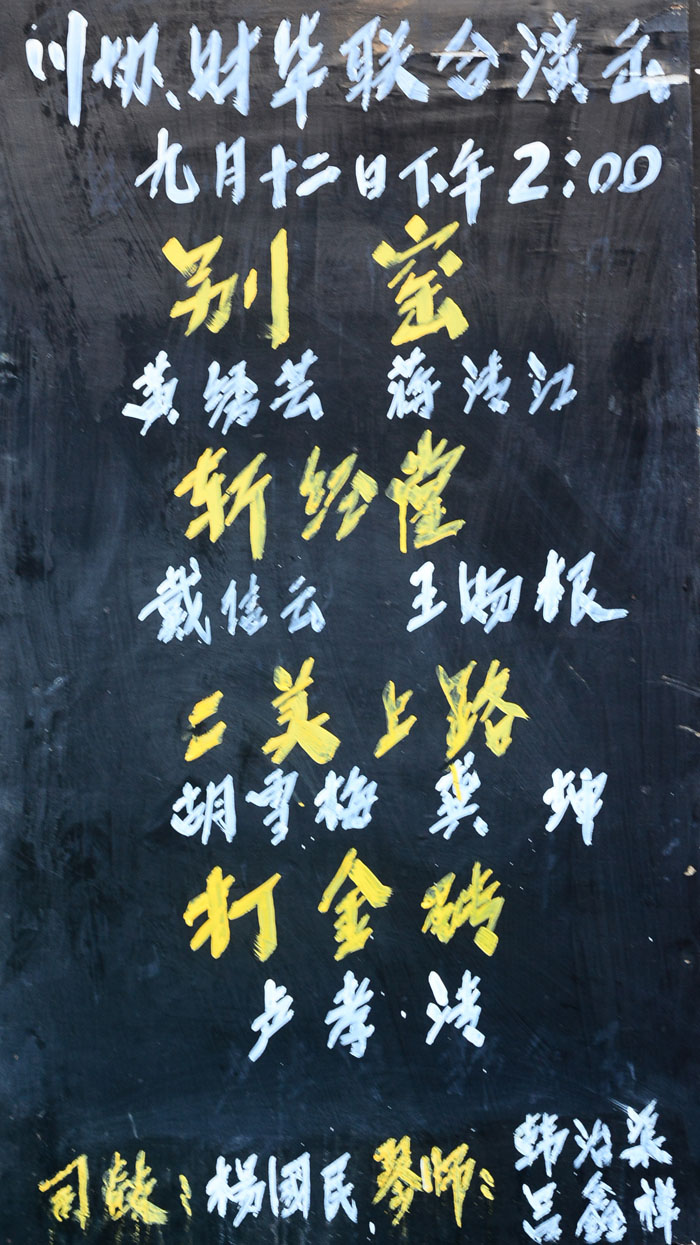 川协、财华联合演出
九月十二日下午2:00
别窑
黄绣芸 蒋清江
斩经堂
戴信云 王旸根
二美上路
胡雪梅 龚坤
打金砖
卢孝清
司鼓: 杨國民 琴师: 韩治渠
吕鑫祥